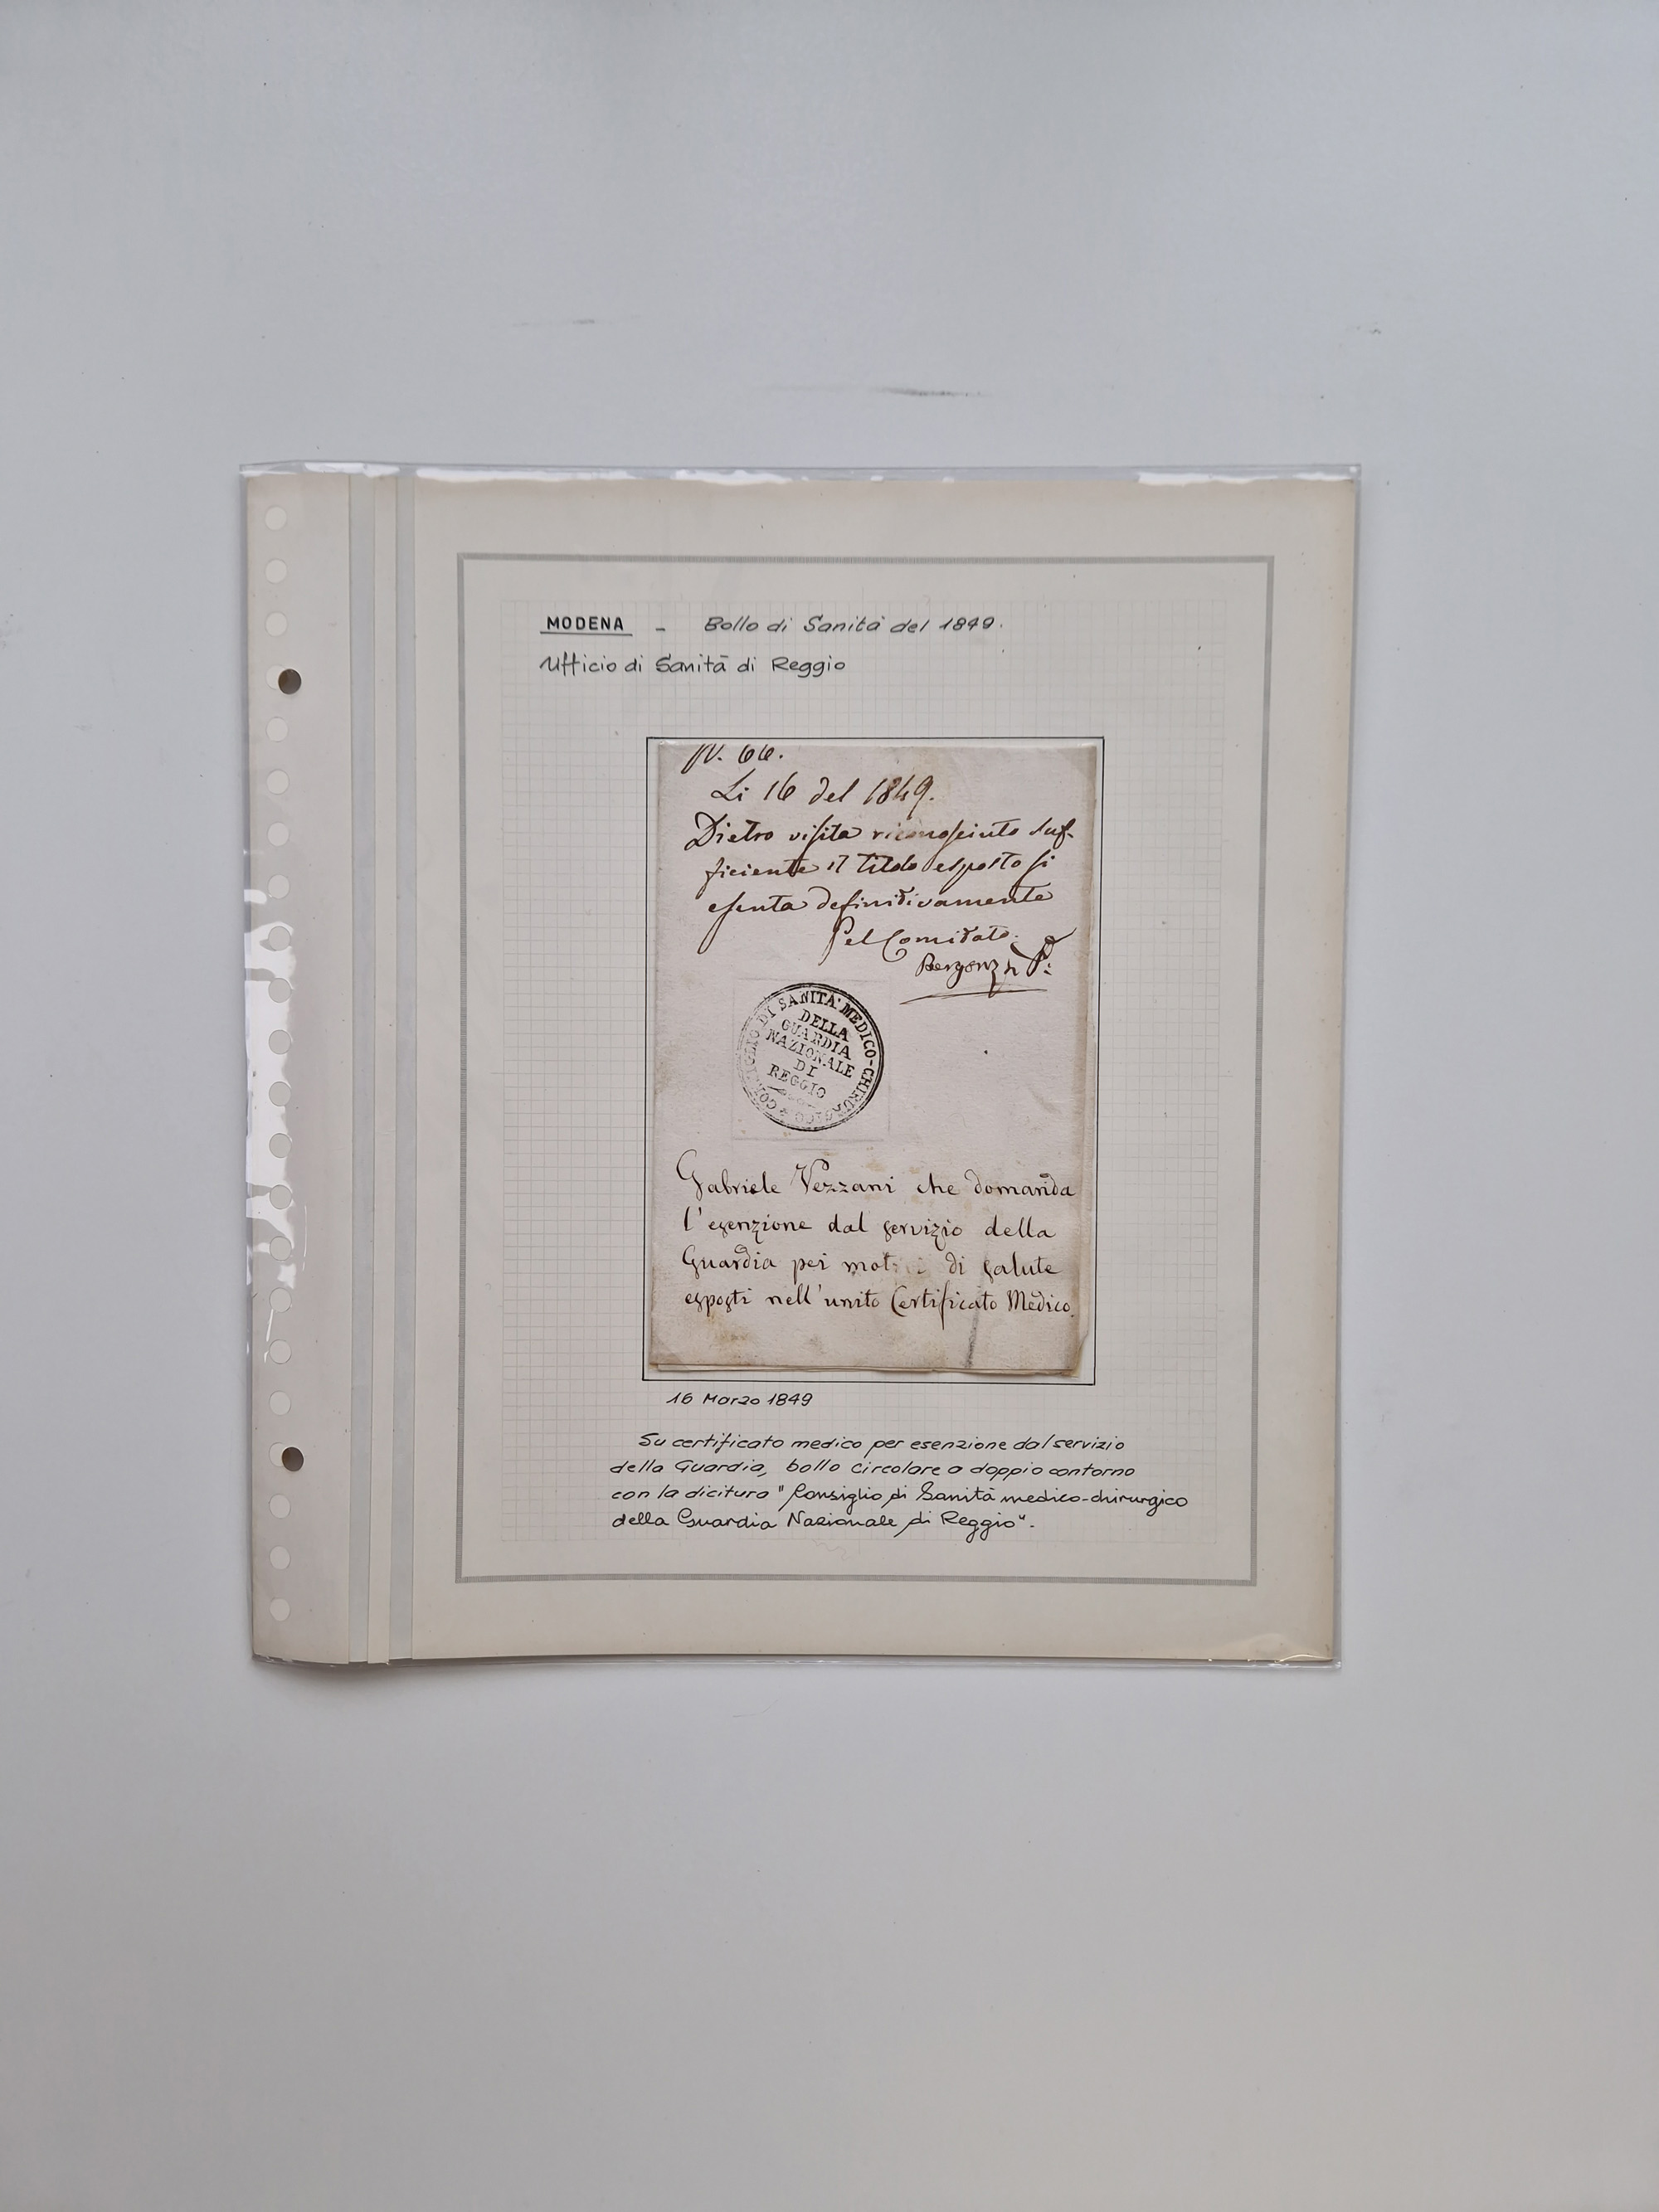 MODENA - Bollo di Sanità del 1849.
Ufficio di Sanità di Reggio
N. 66.
Li 16 del 1849.
Dietro visita riconosciuto suf-
ficiente il titolo esposto si
esenta definitivamente
Pel Comitato
CONSIGLIO DI SANITA' MEDICO-CHIRURGICO
DELLA
GUARDIA
NAZIONALE
DI
REGGIO
Gabriele Vezzani che domanda
l'esenzione dal servizio della
Guardia pei motivi di salute
esposti nell'unito Certificato Medico.
16 Marzo 1849
Su certificato medico per esenzione dal servizio
della Guardia, bollo circolare a doppio contorno
con la dicitura "Consiglio di Sanità medico-chirurgico
della Guardia Nazionale di Reggio".